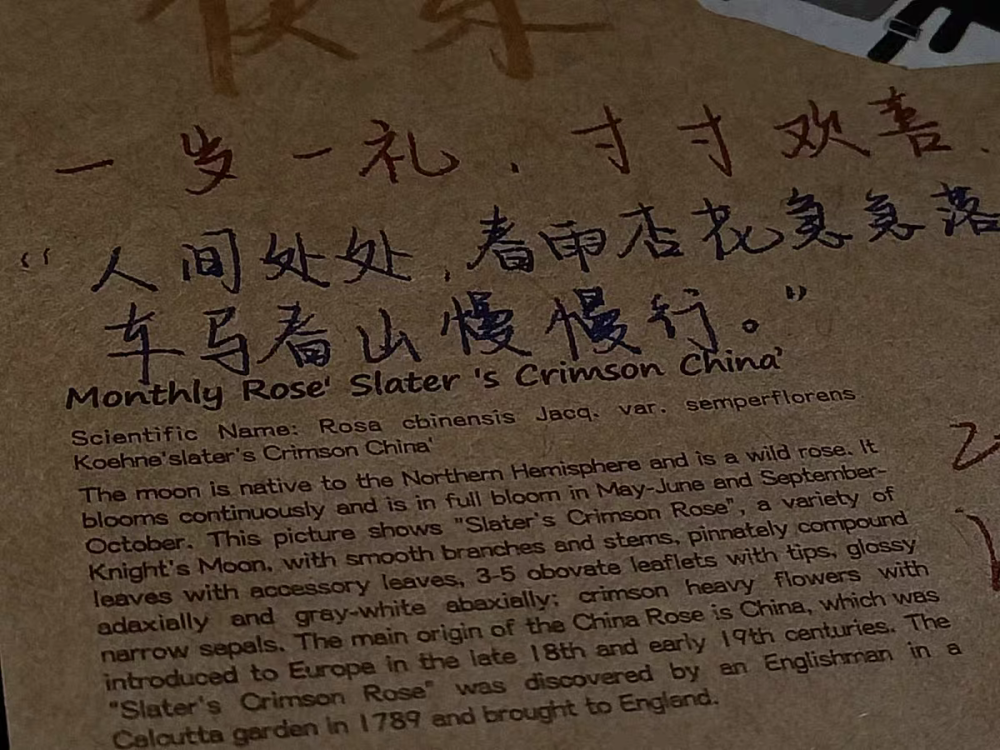 快乐
一岁一礼，寸寸欢喜.
“人间处处，春雨杏花急急落
车马春山慢慢行。”
Monthly Rose' Slater 's Crimson China'
Scientific Name: Rosa cbinensis Jacq. var. semperflorens
Koehne'slater's Crimson China'
The moon is native to the Northern Hemisphere and is a wild rose. It
blooms continuously and is in full bloom in May-June and September-
October. This picture shows "Slater's Crimson Rose", a variety of
Knight's Moon, with smooth branches and stems, pinnately compound
leaves with accessory leaves, 3-5 obovate leaflets with tips, glossy
adaxially and gray-white abaxially; crimson heavy flowers with
narrow sepals. The main origin of the China Rose is China, which was
introduced to Europe in the late 18th and early 19th centuries. The
"Slater's Crimson Rose" was discovered by an Englishman in a
Calcutta garden in 1789 and brought to England.